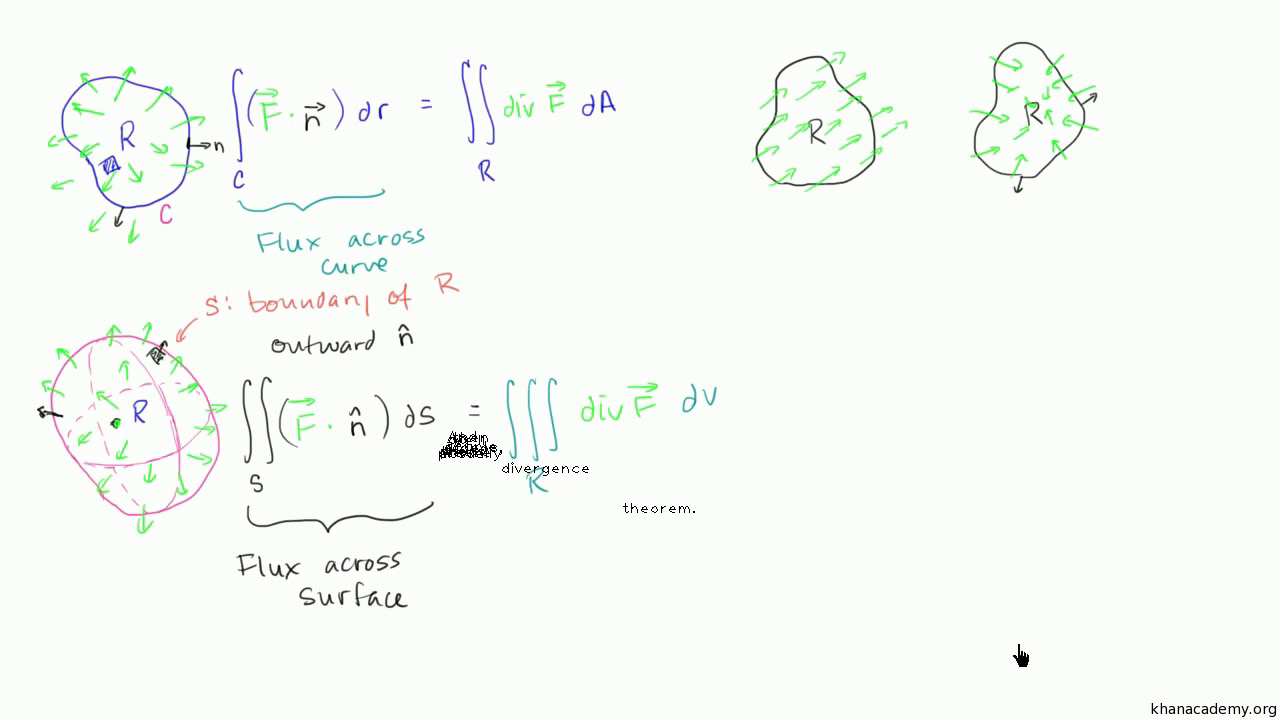 R
n
C
∫_C (F⃗ · n⃗) dr = ∬_R div F⃗ dA
Flux across
curve
S: boundary of R
outward n̂
R
∬_S (F⃗ · n̂) dS = ∭_R div F⃗ dV
divergence
theorem.
Flux across
surface
R
R
khanacademy.org